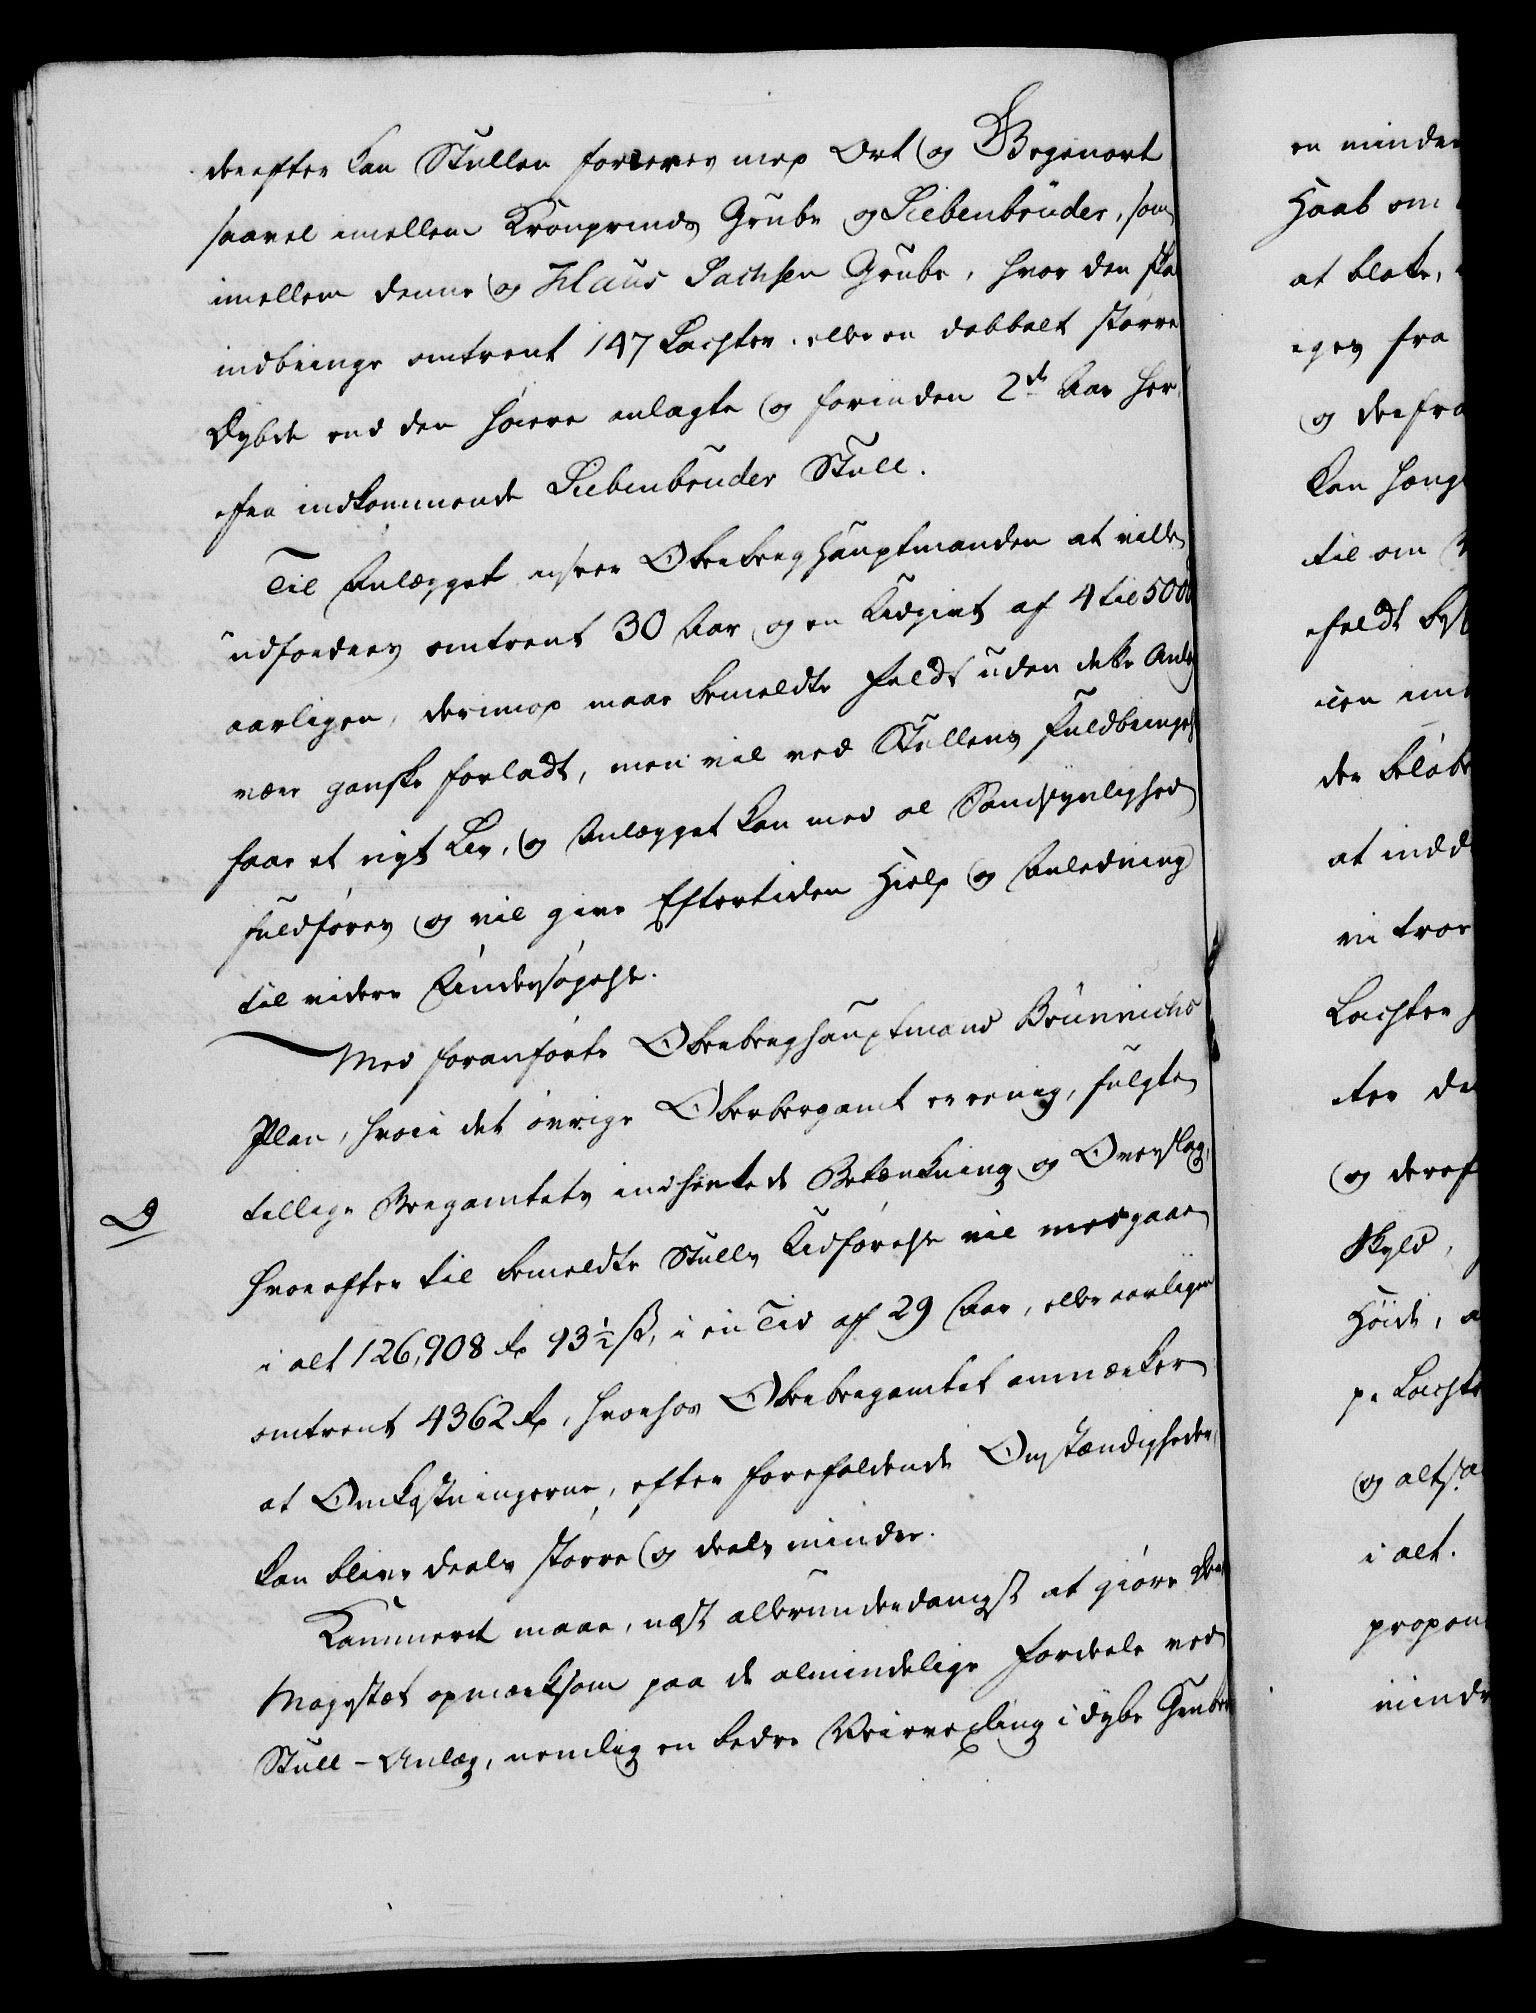 derefter kan Stullen forceres med Ort og Gegenort
saavel imellem Kronprinds Grube og Siebenbrüder, som
imellem denne og Klaus Sachsen Grube, hvor den skal
indbringe omtrent 147 Lachter, eller en dobbelt større
Dybde end den høiere anlagte og forinden 2de Aar her-
efter indkommende Siebenbrüder Stull.
Til Anlægget anseer Oberberghauptmanden at ville
udfordres omtrent 30 Aar og en Udgivt af 4 til 5000
aarligen, derimod maae bemeldte Feldt uden dette Anlæg
være ganske forladt, men vil ved Stullens Fuldbringelse
faae et nyt Liv, og Anlægget kan med al Sandsynlighed
fuldføres og vil give Eftertiden Hielp og Anledning
til videre Undersøgelse.
Med foranførte Oberberghauptmand Brünnichs
Plan, hvori det øvrige Oberbergamt er eenig, fulgte
tillige Bergamtets indhentede Betænkning og Overslag,
hvorefter til bemeldte Stulls Udførelse vil medgaae
i alt 126,908 Rd 93½ ß, i en Tid af 29 Aar, eller aarligen
omtrent 4362 Rd, hvorhos Oberbergamtet anmærker
at Omkostningerne, efter forefaldende Omstændigheder
kan blive deels større og deels mindre.
Kammeret maae, næst allerunderdanigst at giøre Deres
Majestæt opmærksom paa de almindelige Fordeele ved
Stull-Anlæg, nemlig en bedre Veirvexling i dybe Gruber
9
en minder
Haab om
at bloke,
eges fra
og derfra
kan
til om
feldt
der beløbe
at indd
vi troe
Lachter
ter de
og deref
Skyld,
Høide, a
pr Lachte
og altsaa
i alt.
propon
mindr